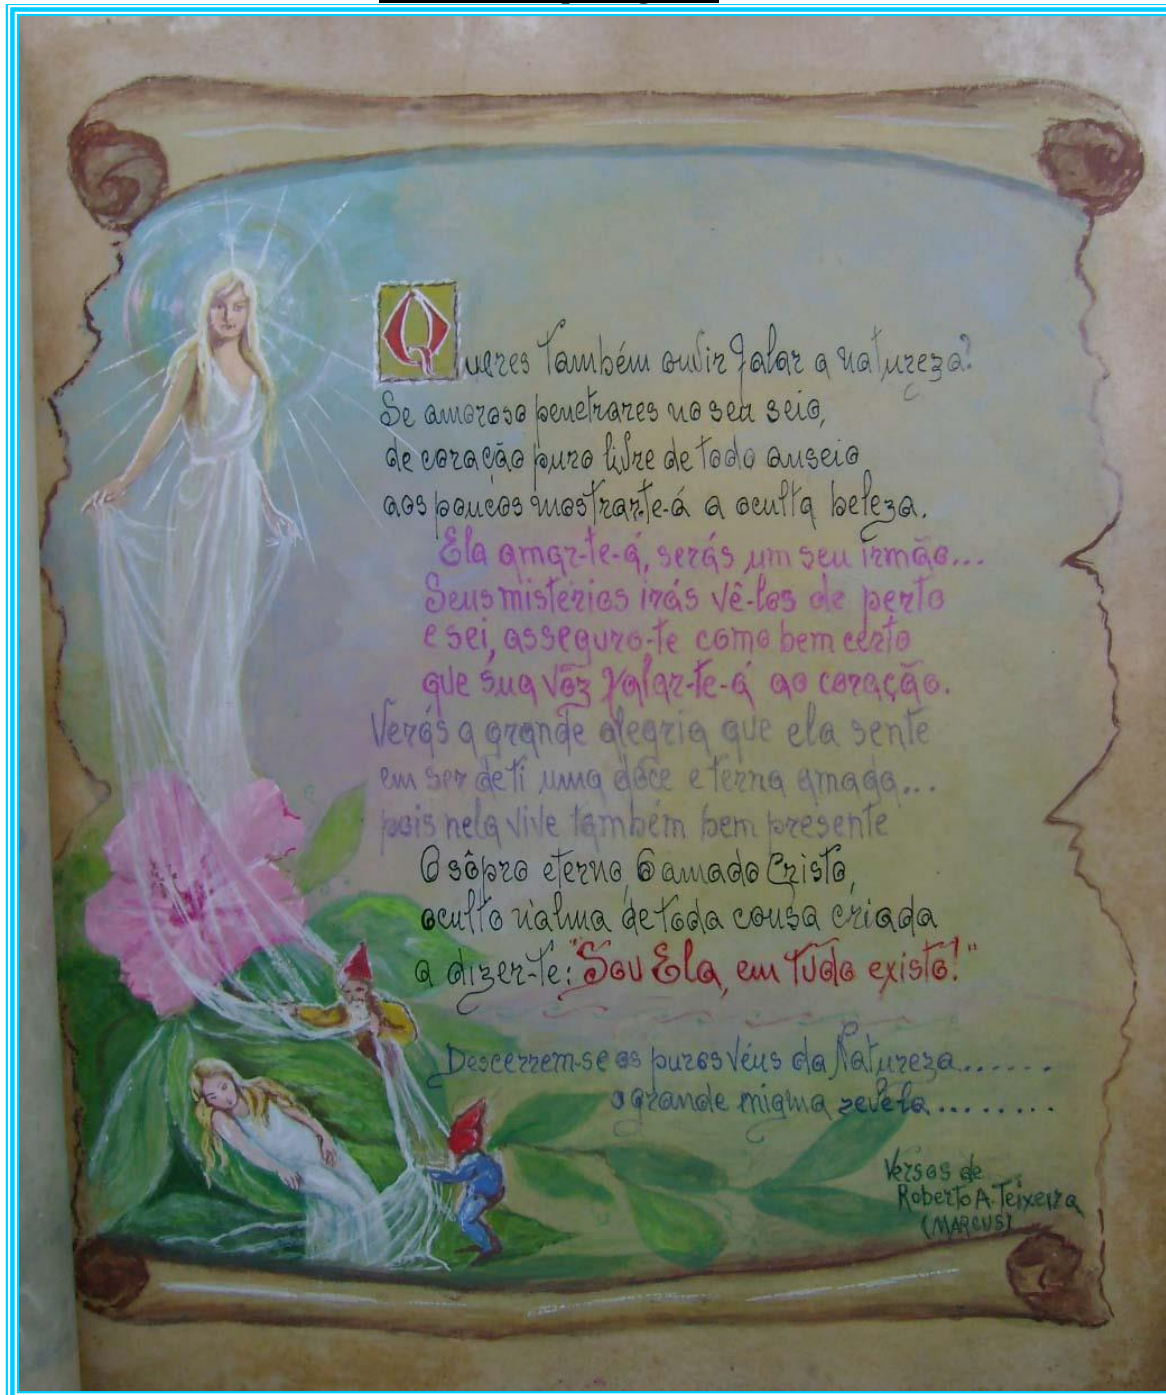 Queres também ouvir falar a natureza?
Se amoroso penetrares no seu seio,
de coração puro livre de todo anseio
aos poucos mostrar-te-á a oculta beleza.
Ela amar-te-á, serás um seu irmão...
Seus mistérios irás vê-los de perto
e sei, asseguro-te como bem certo
que sua vôz falar-te-á ao coração.
Verás a grande alegria que ela sente
em ser de ti uma dôce e terna amada...
pois nela vive também bem presente
O sôpro eterno, O amado Cristo,
oculto n'alma de toda cousa criada
a dizer-te: "Sou Ela, em tudo existo!"
Descerrem-se os puros véus da Natureza......
o grande enigma revela.........
Versos de
Roberto A. Teixeira
(MARCUS)